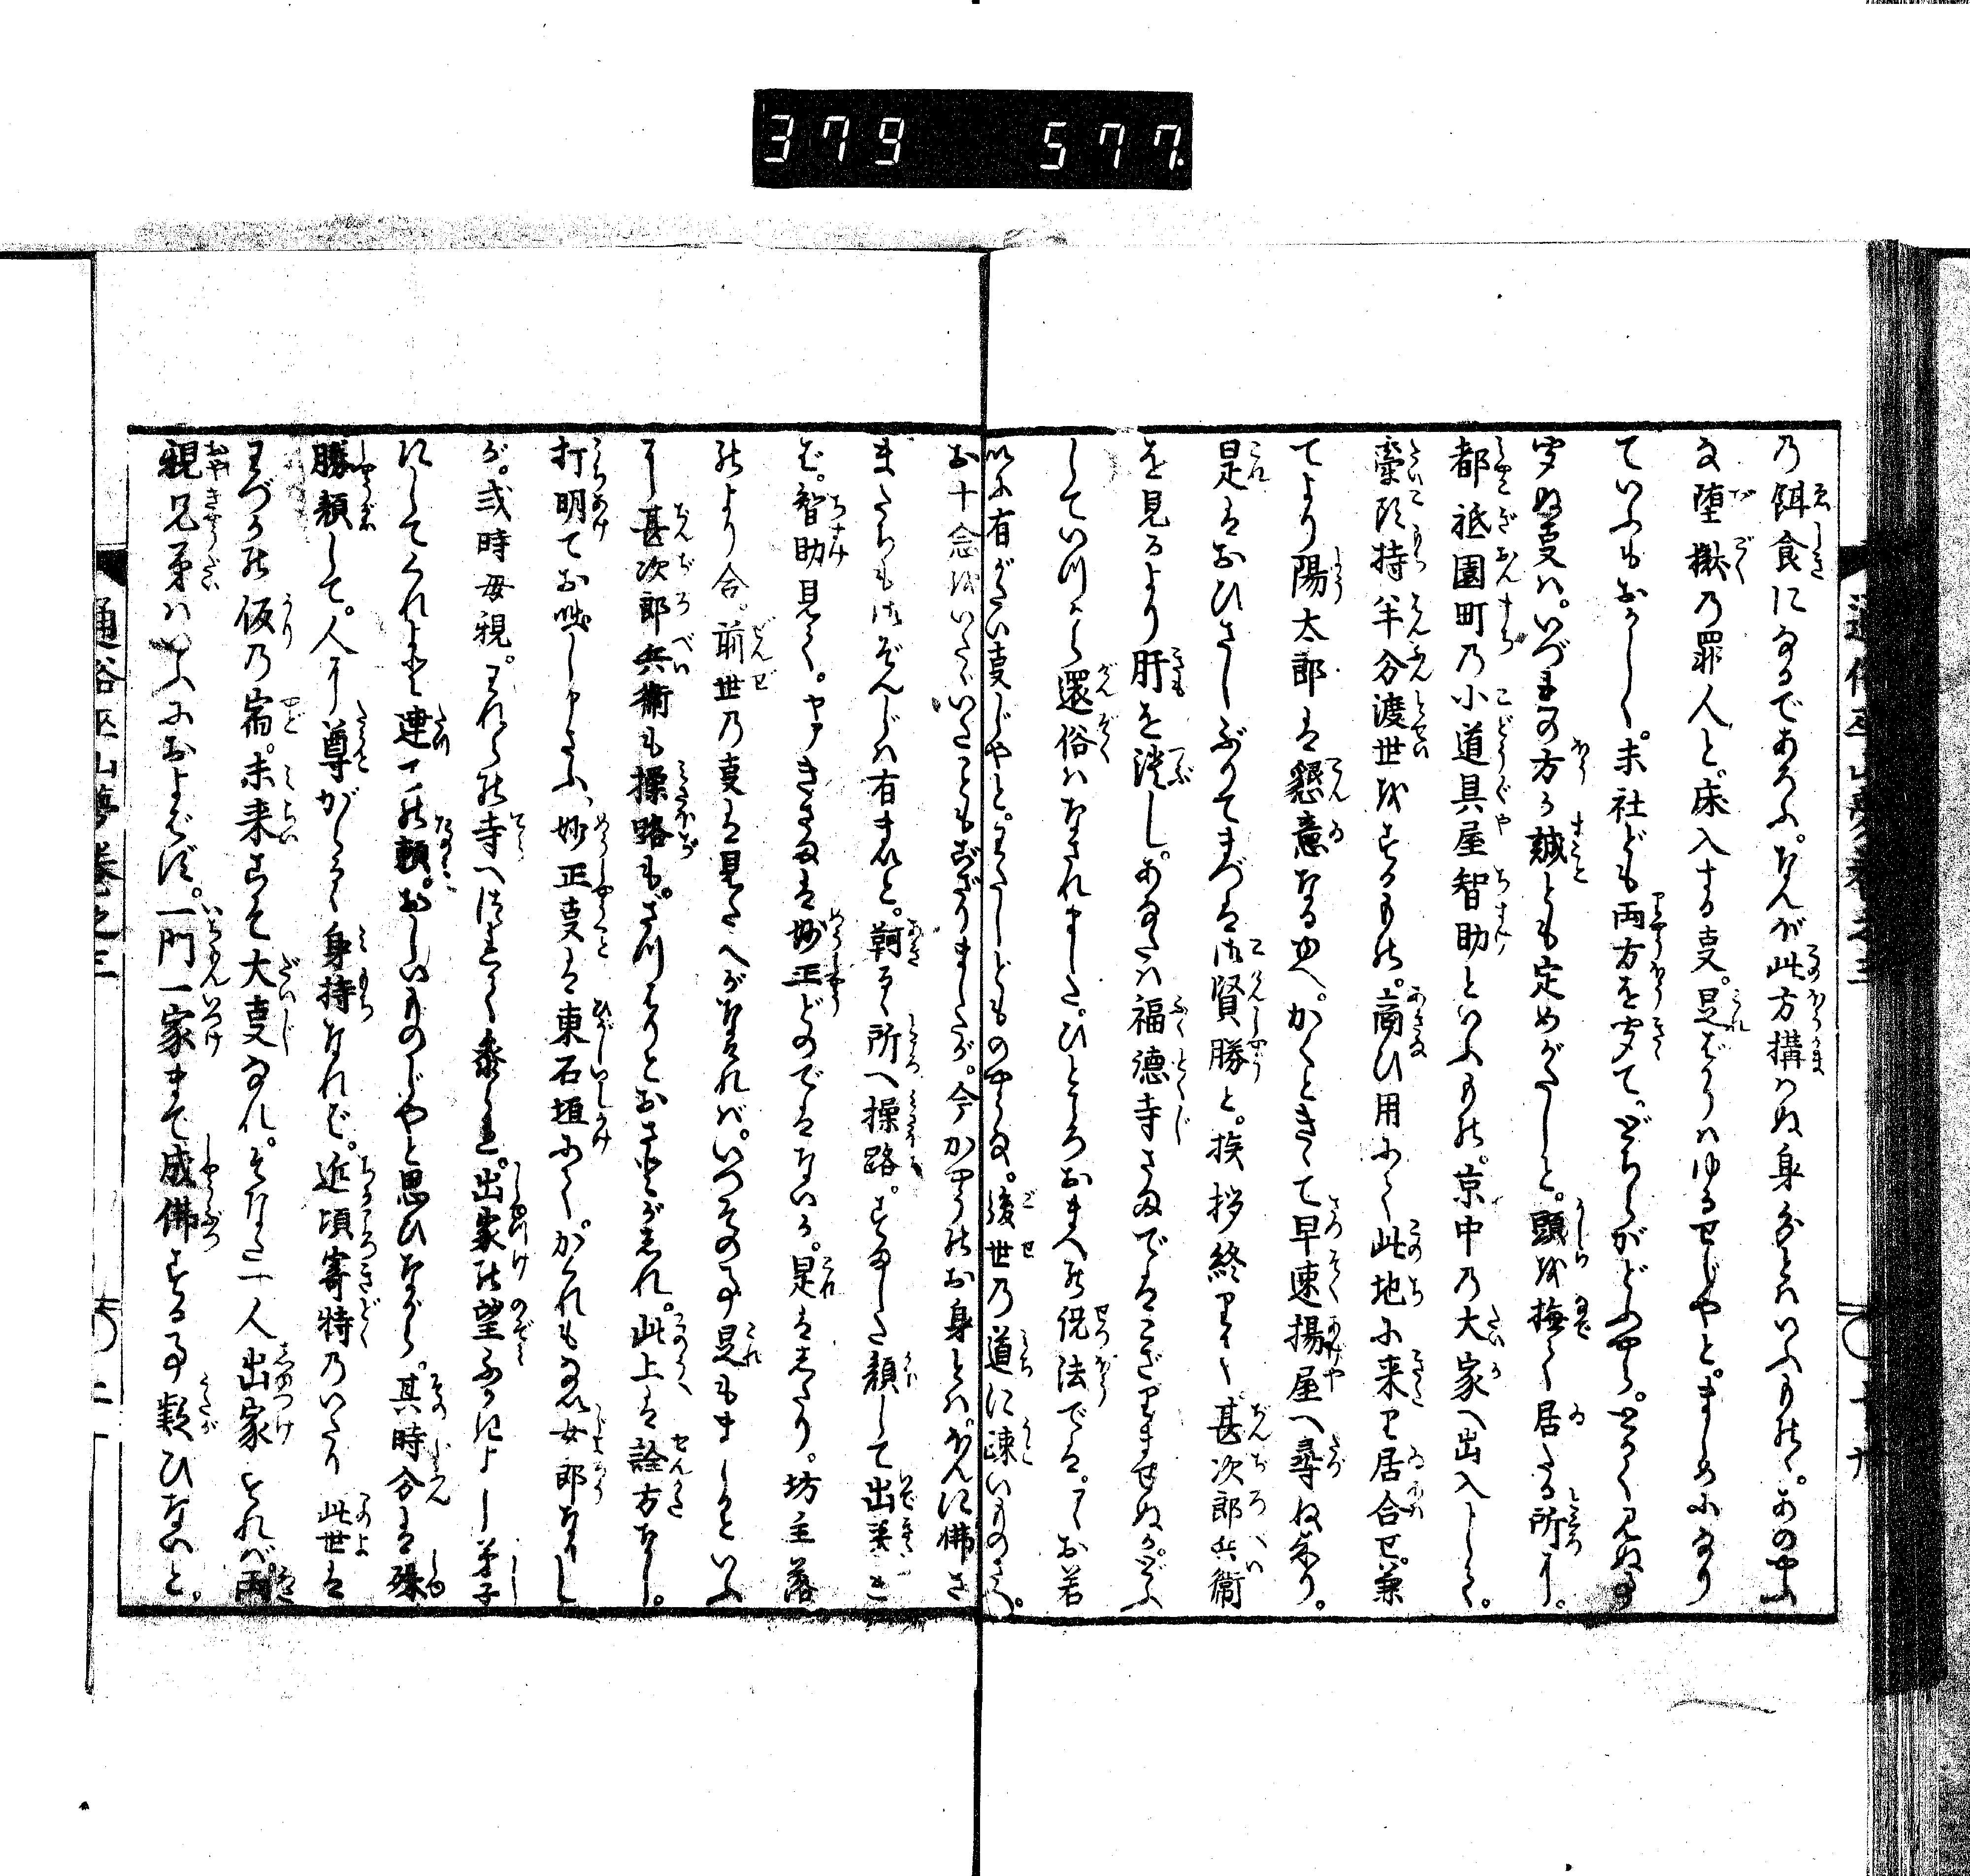 379 577.
通俗巫山夢巻之三
乃餌食になるであろふ。なんが此方構はぬ身分とはいふものゝ。あの中ふ
な堕獄の罪人と。床入する事。是ばかりはゆるせじやと。まじめになり
ていふもおかしく。末社ども両方を聞て。どちらがどふやら。とかく見ぬ事
聞ぬ事は。いづれの方が誠とも定めがたしと。頭を撫て居る所に。
都祇園町の小道具屋智助といふもの。京中の大家へ出入しるく。
臺所持半分渡世をするもの。商ひ用にて此地に来り居合せ。兼
てより陽太郎は懇意なるゆへ。かくときゝて早速揚屋へ尋ね来り。
是はおひさしぶりてまづは御賢勝と。挨拶終りて甚次郎兵衛
を見るより肝を潰し。あなたは福徳寺さまではござりませぬか。どふ
していつから還俗はなされました。ひところおまへの説法では。お若
いに有がたい事じやと。わたしどものやうな。後世の道に疎いものさへ。
お十念をいたゞいたこともござりましたが。今かやうのお身とは。ほんに佛さ
またちも御ぞんじは有まいと。呆るゝ所へ操路。すました顔して出来き
ば。智助見て。ヤアきさまは妙正どのではないか。是はしたり。坊主落
のより合。前世の事は見たへがなければ。いつその事是もましかといふ
に甚次郎兵衛も操路も。さつぱりとおさとが知れ。此上は詮方なし。
打明てお咄し申さふ、妙正事は東石垣にて。かくれもない女郎なりし
が。或時母親。われらの寺へ使きて参られ。出家の望ふかきよし弟子
にしてくれよと達ての頼。おしいものじやと思ひながら。其時分は殊
勝顔して。人に尊がらるゝ身持なれば。近頃寄特のいたり此世は
わづかの仮の宿。未来こそ大事なれ。そなた一人出家とれば。両
親兄弟はいふにおよばず。一門一家まで成佛する事疑ひないと。
通俗巫山夢巻之三